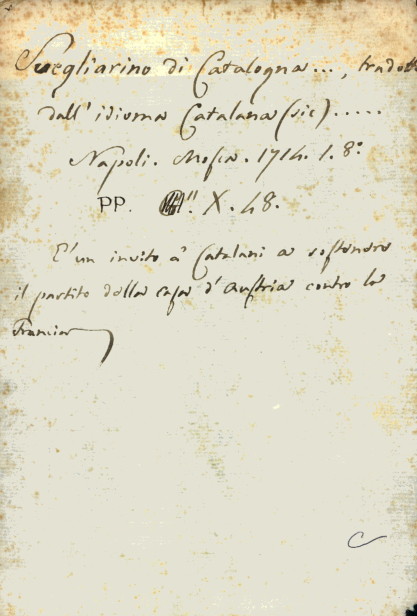 Svegliarino di Catalogna..., tradott
dall'idioma Catalana (sic).....
Napoli. Mosca. 1714. 1. 8°
PP. X. 48.
E' un invito a' Catalani a sostenere
il partito della casa d'Austria contro la
Francia